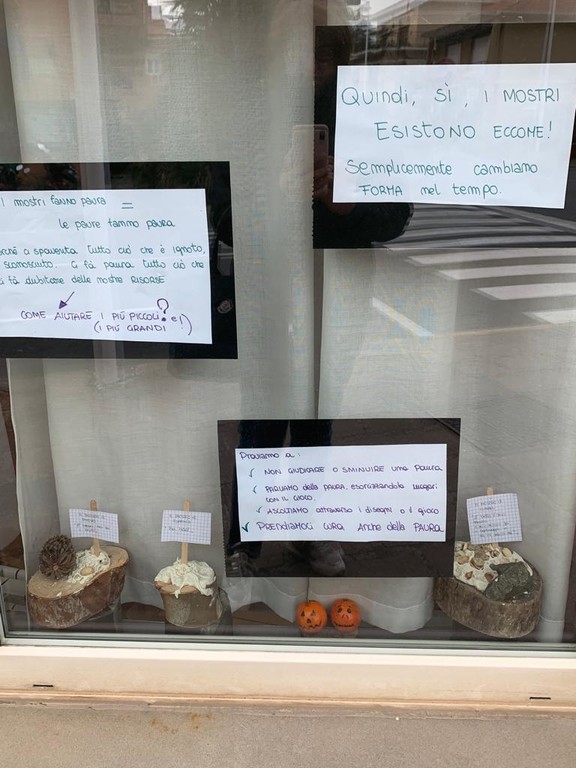 i mostri fanno paura =
le paure fanno paura
a spaventa tutto ciò che è ignoto,
sconosciuto. Ci fà paura tutto ciò che
fà dubitare delle nostre RISORSE
COME AIUTARE i PIÙ PICCOLI? e
(i PIÙ GRANDI!)
QUINDI, SÌ, i MOSTRI
ESISTONO ECCOME!
Semplicemente cambiamo
FORMA nel tempo.
Proviamo a:
NON GIUDICARE O SMINUIRE una PAURA
PARLIAMO della PAURA, esorcizzandola magari
CON IL GIOCO.
ASCOLTIAMO attraverso i disegni o il gioco
PRENDIAMOCI CURA Anche della PAURA